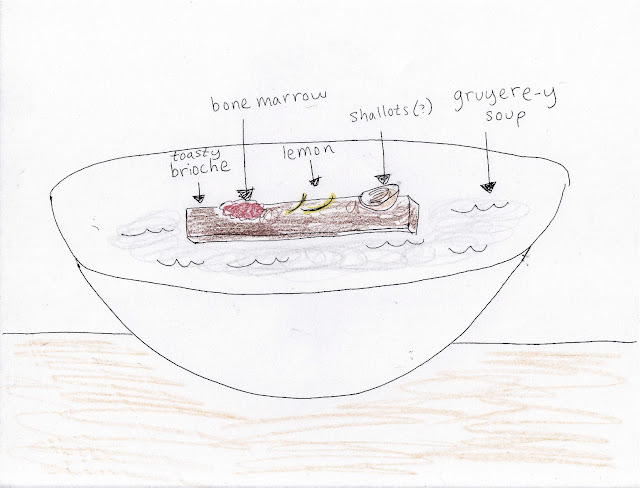 bone marrow
shallots(?)
gruyere-y
soup
toasty
brioche
lemon